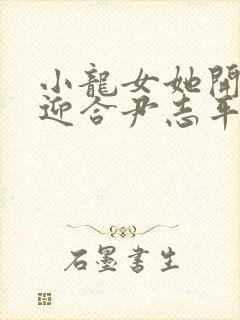 小龍女她開
迎合尹志平
石墨書生